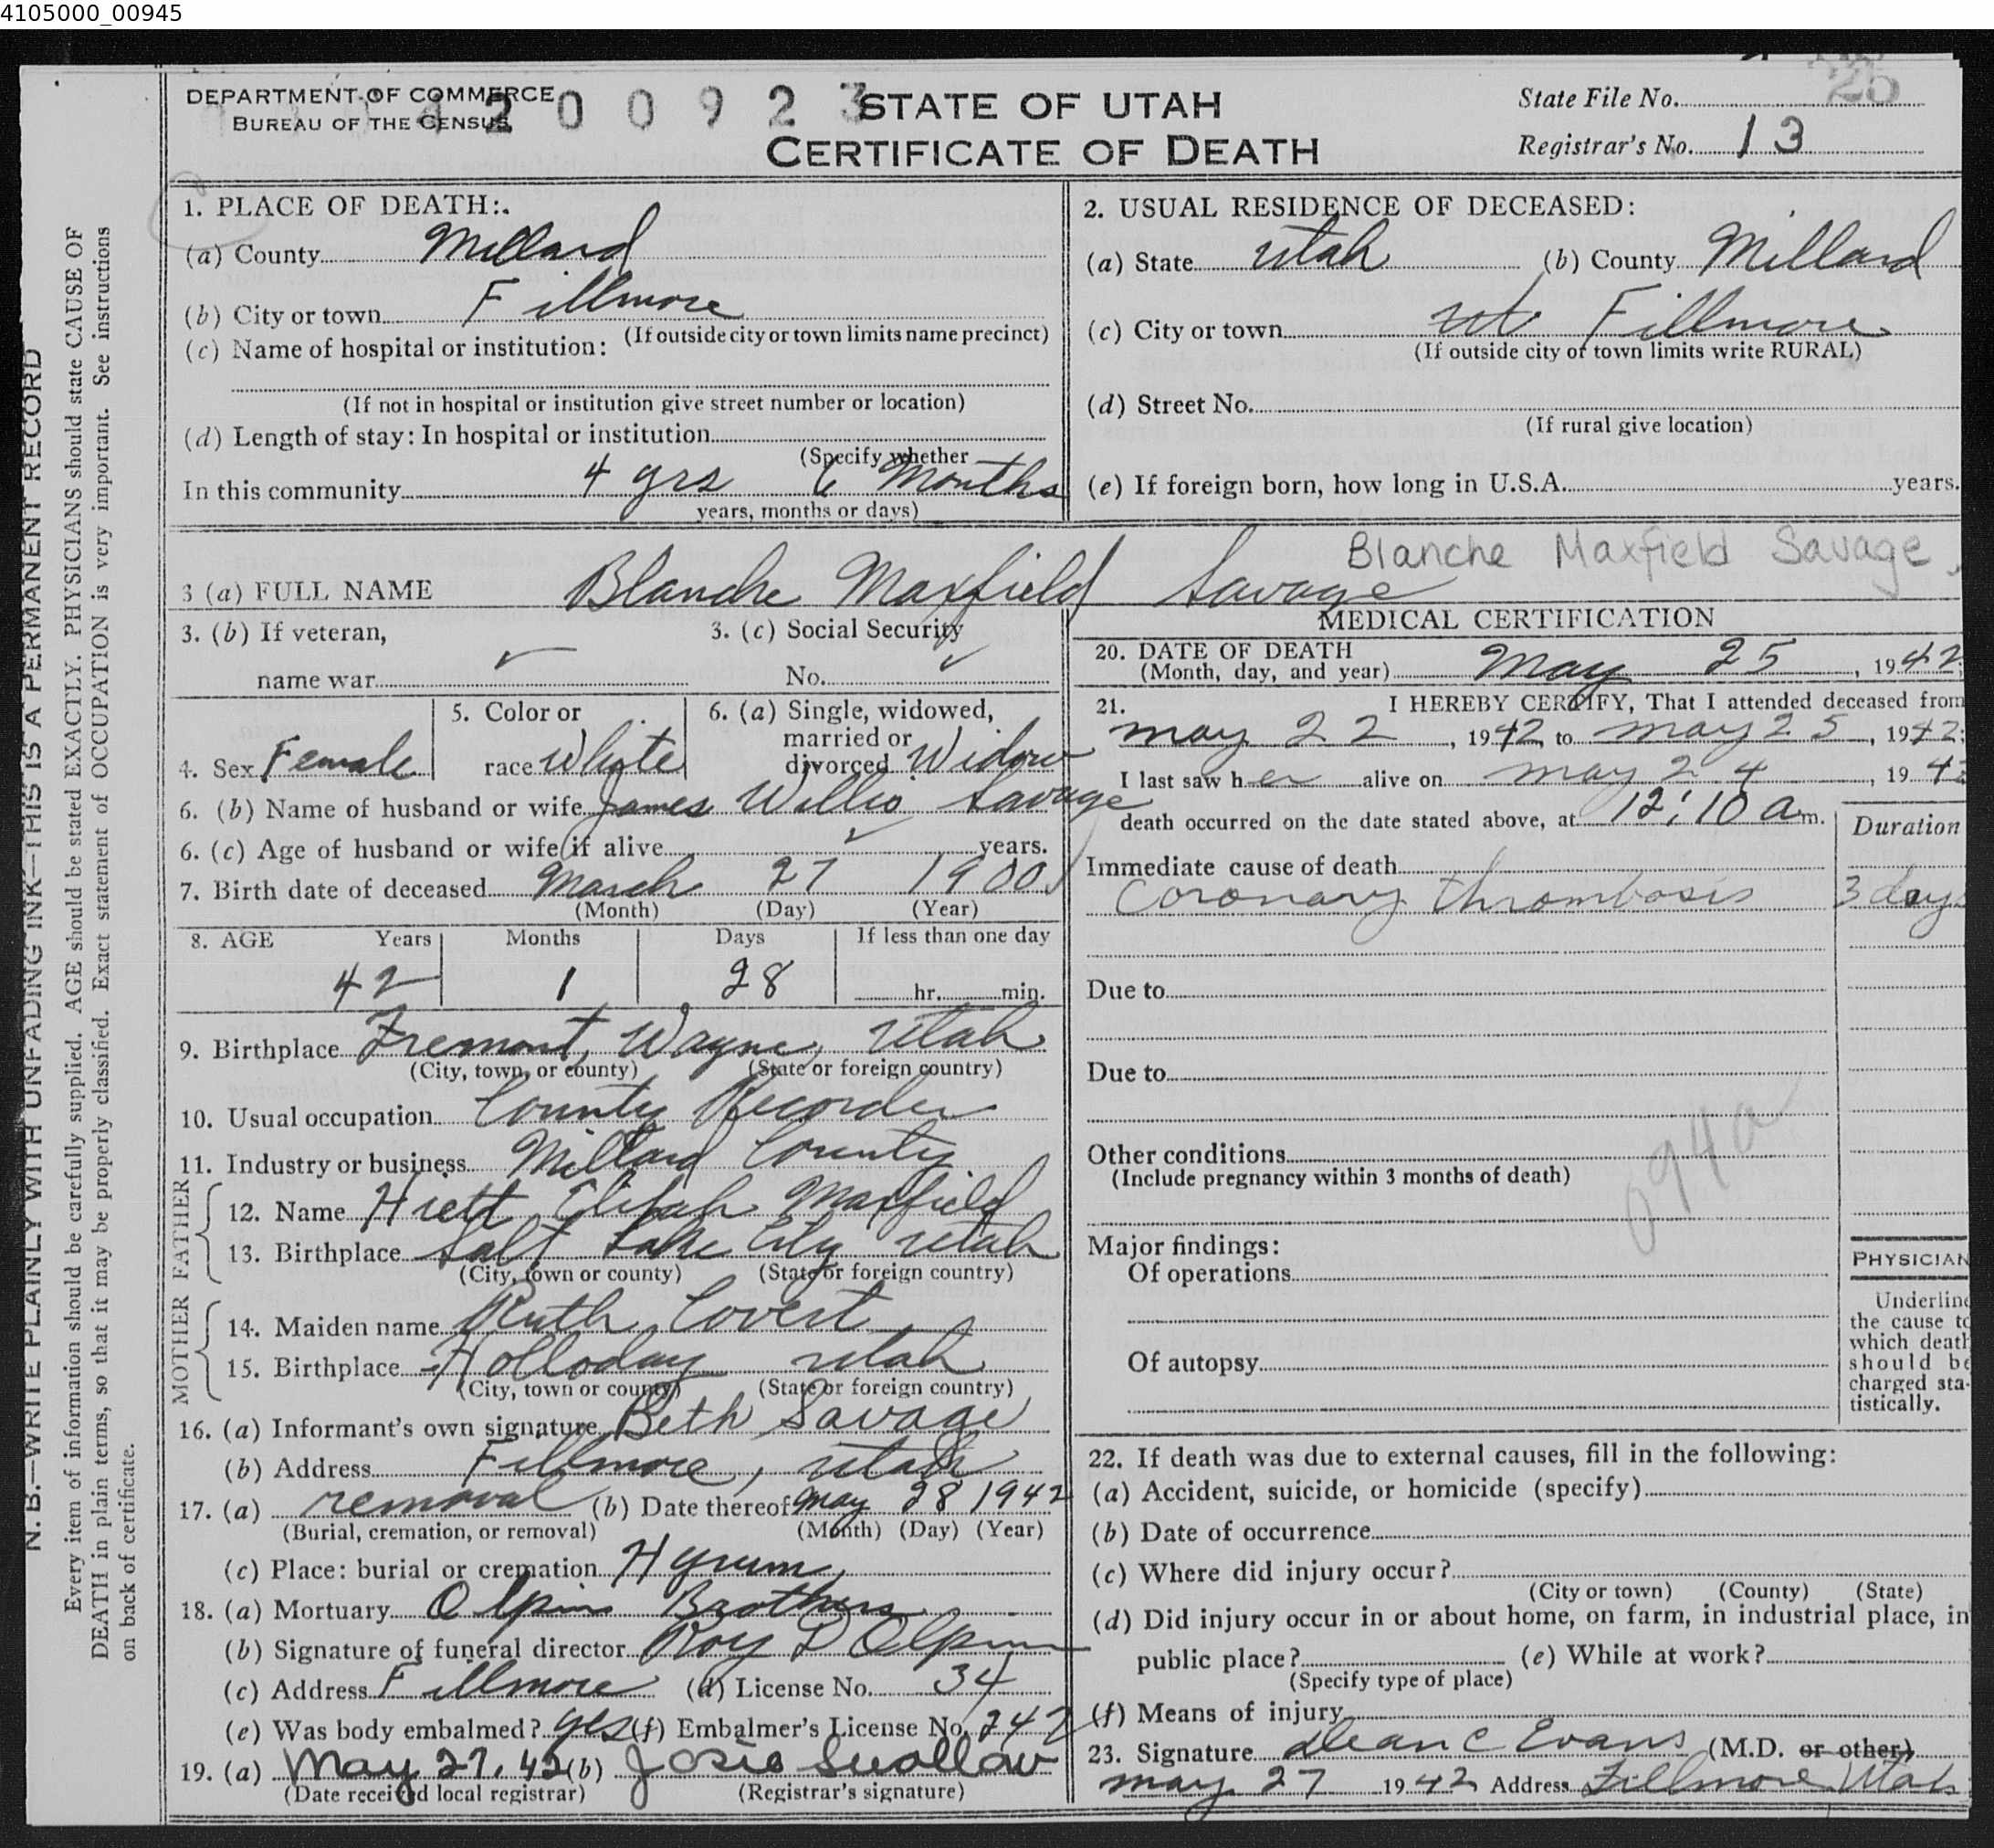 4105000_00945
DEPARTMENT OF COMMERCE
BUREAU OF THE CENSUS
4 2 0 0 9 2 3
STATE OF UTAH
CERTIFICATE OF DEATH
State File No. 25
Registrar's No. 13
1. PLACE OF DEATH:
(a) County Millard
(b) City or town Fillmore
(If outside city or town limits name precinct)
(c) Name of hospital or institution:
(If not in hospital or institution give street number or location)
(d) Length of stay: In hospital or institution
(Specify whether
In this community 4 yrs 6 Months
years, months or days)
2. USUAL RESIDENCE OF DECEASED:
(a) State Utah (b) County Millard
(c) City or town Fillmore
(If outside city or town limits write RURAL)
(d) Street No.
(If rural give location)
(e) If foreign born, how long in U.S.A. years.
3 (a) FULL NAME Blanche Maxfield Savage
Blanche Maxfield Savage
3. (b) If veteran,
name war
3. (c) Social Security
No.
4. Sex Female
5. Color or
race White
6. (a) Single, widowed,
married or
divorced Widow
6. (b) Name of husband or wife James Willis Savage
6. (c) Age of husband or wife if alive years.
7. Birth date of deceased March 27 1900
(Month) (Day) (Year)
8. AGE Years Months Days If less than one day
42 1 28 hr. min.
9. Birthplace Fremont, Wayne, Utah
(City, town, or county) (State or foreign country)
10. Usual occupation County Recorder
11. Industry or business Millard County
FATHER
12. Name Hiett Elijah Maxfield
13. Birthplace Salt Lake City Utah
(City, town or county) (State or foreign country)
MOTHER
14. Maiden name Ruth Covert
15. Birthplace Holloday Utah
(City, town or county) (State or foreign country)
16. (a) Informant's own signature Beth Savage
(b) Address Fillmore, Utah
17. (a) removal (b) Date thereof May 28 1942
(Burial, cremation, or removal) (Month) (Day) (Year)
(c) Place: burial or cremation Hyrum
18. (a) Mortuary Olpin Brothers
(b) Signature of funeral director Roy D Olpin
(c) Address Fillmore (d) License No. 34
(e) Was body embalmed? yes (f) Embalmer's License No. 242
19. (a) May 27, 42 (b) Josie Swallow
(Date received local registrar) (Registrar's signature)
MEDICAL CERTIFICATION
20. DATE OF DEATH
(Month, day, and year) May 25, 1942
21. I HEREBY CERTIFY, That I attended deceased from
may 22, 1942, to may 25, 1942;
I last saw her alive on may 24, 1942
death occurred on the date stated above, at 12:10 a m.
Duration
Immediate cause of death
Coronary thrombosis 3 days
Due to
Due to
Other conditions
(Include pregnancy within 3 months of death)
094a
Major findings:
Of operations
Of autopsy
PHYSICIAN
Underline
the cause to
which death
should be
charged sta-
tistically.
22. If death was due to external causes, fill in the following:
(a) Accident, suicide, or homicide (specify)
(b) Date of occurrence
(c) Where did injury occur?
(City or town) (County) (State)
(d) Did injury occur in or about home, on farm, in industrial place, in
public place? (e) While at work?
(Specify type of place)
(f) Means of injury
23. Signature Dean C Evans (M.D. or other)
may 27 1942 Address Fillmore Utah
N.B.—WRITE PLAINLY WITH UNFADING INK—THIS IS A PERMANENT RECORD
Every item of information should be carefully supplied. AGE should be stated EXACTLY. PHYSICIANS should state CAUSE OF
DEATH in plain terms, so that it may be properly classified. Exact statement of OCCUPATION is very important. See instructions
on back of certificate.